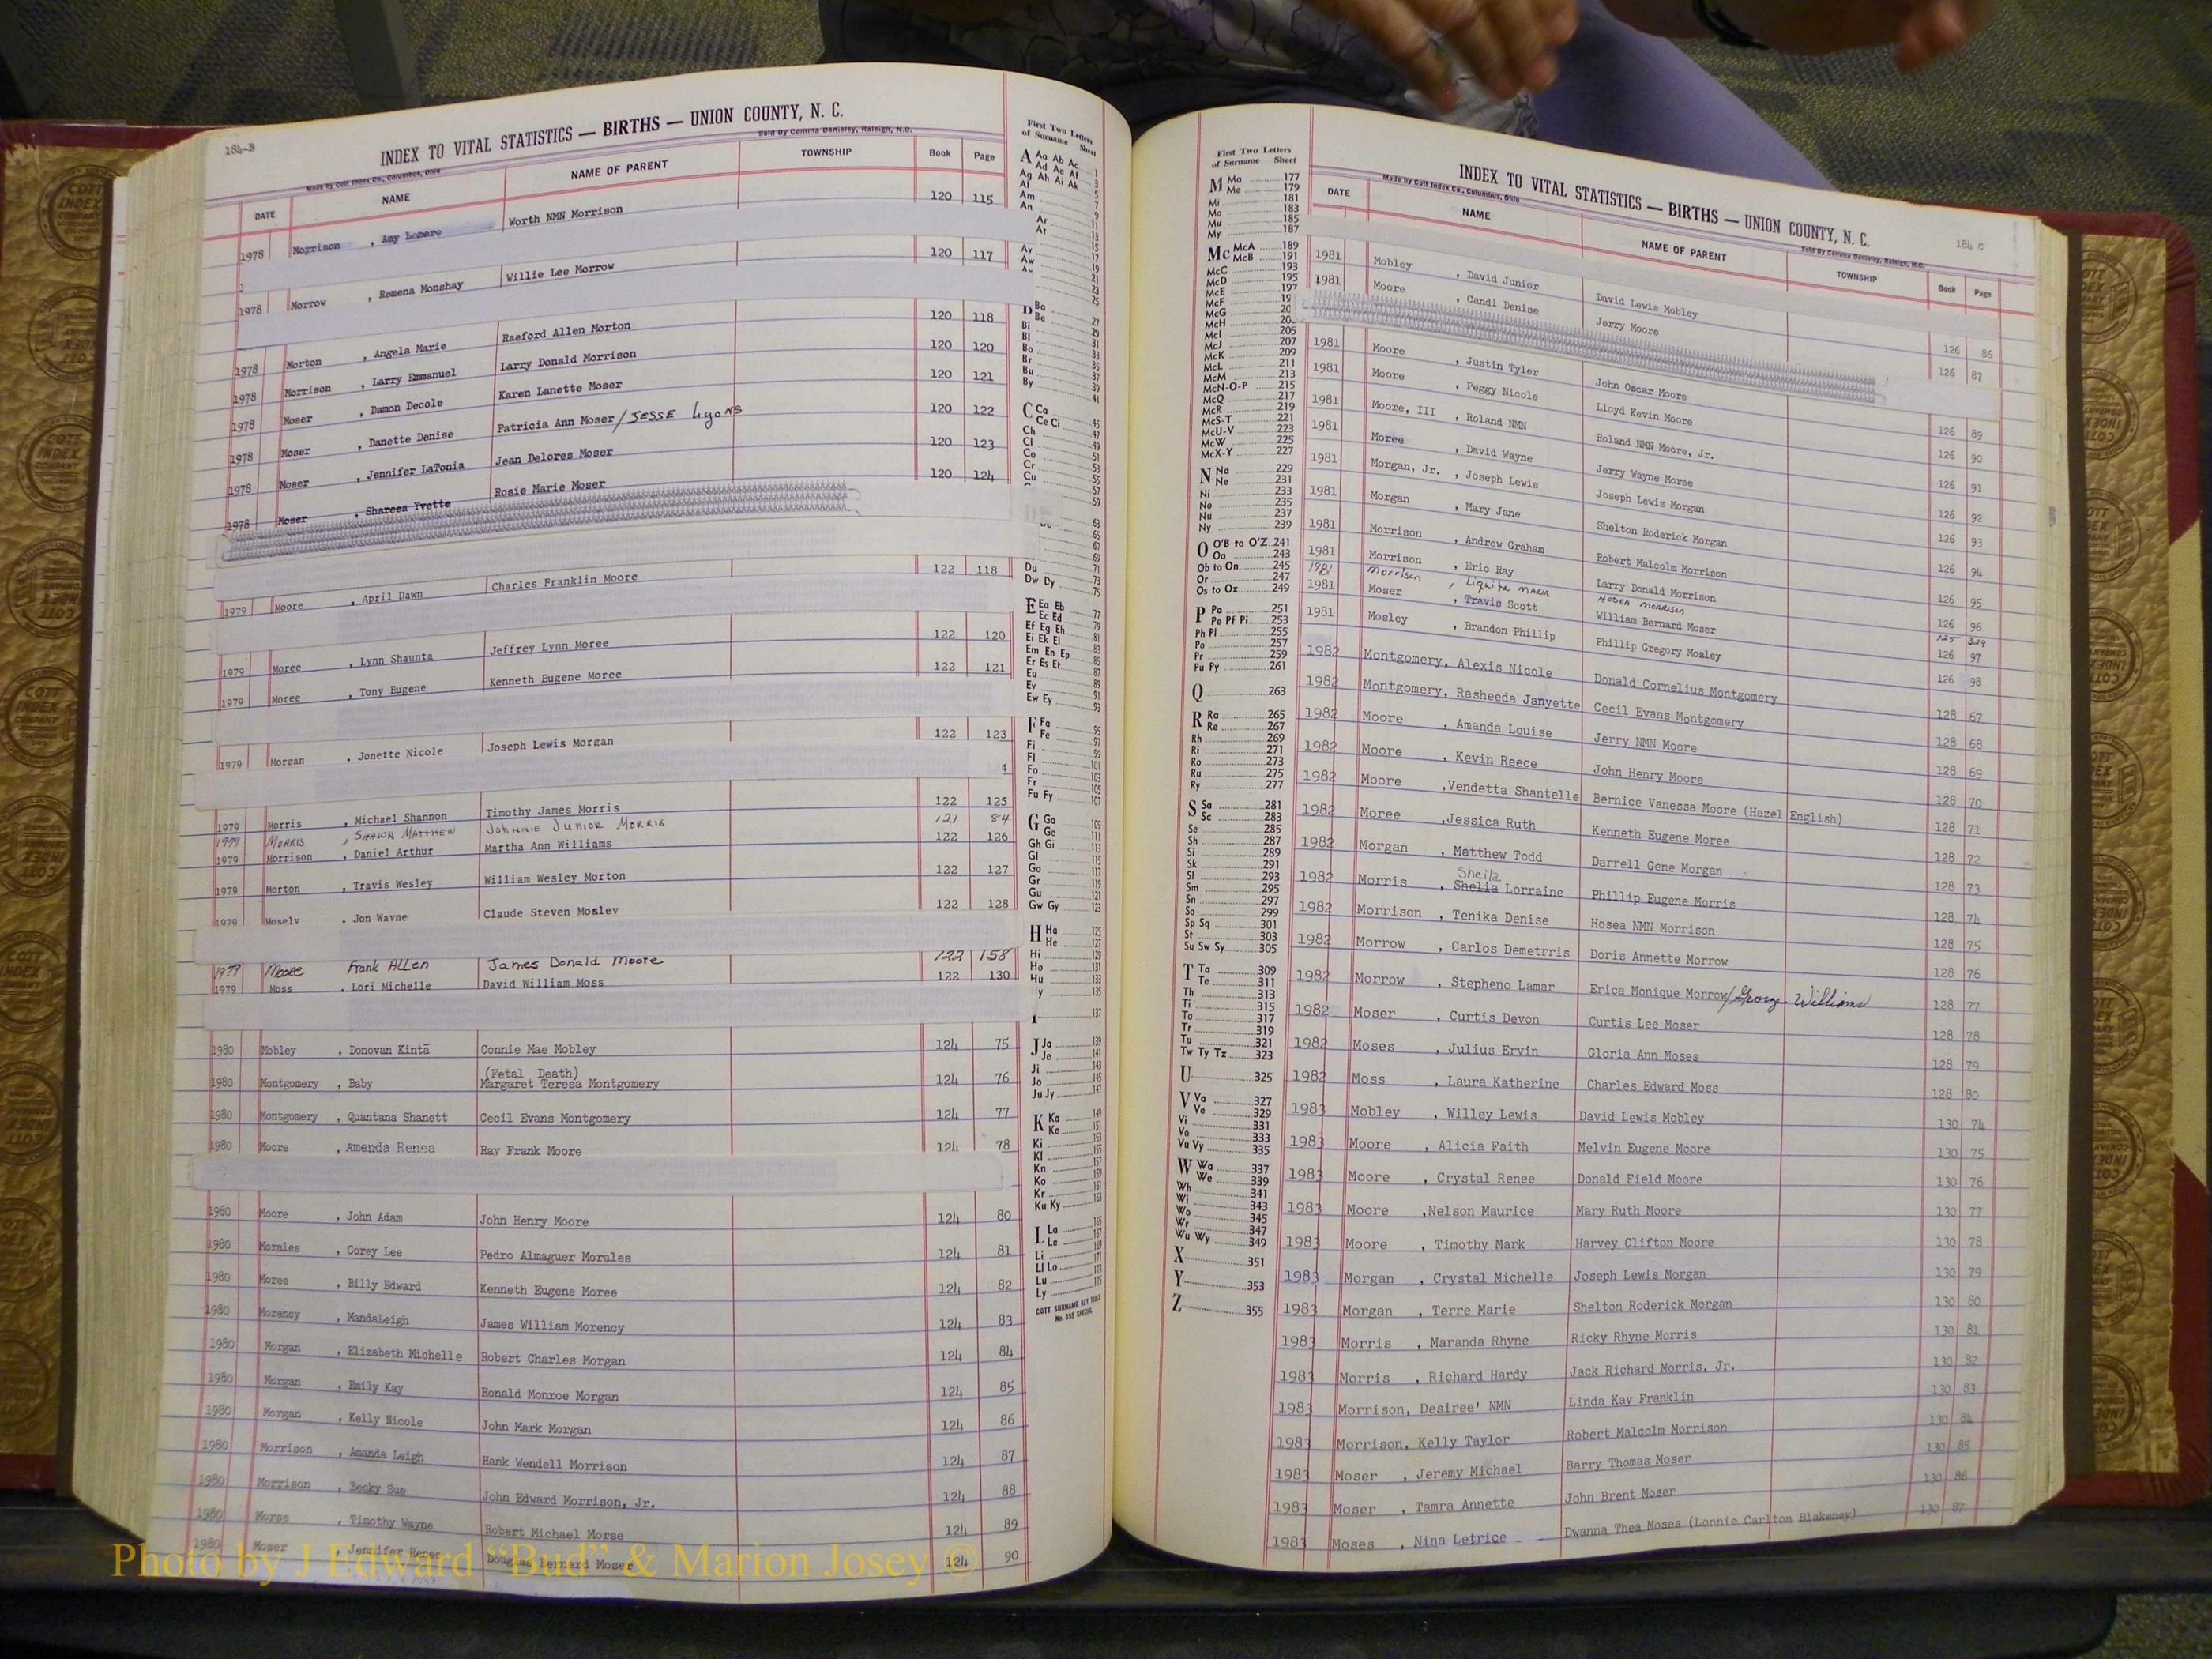 184-B
INDEX TO VITAL STATISTICS — BIRTHS — UNION COUNTY, N. C.
Made by Cott Index Co., Columbus, Ohio
Sold By Comma Danieley, Raleigh, N.C.
DATE NAME NAME OF PARENT TOWNSHIP Book Page
1978 Morrison , Amy Worth NMN Morrison 120 115
1978 Morrow , Remena Monshay Willie Lee Morrow 120 117
1978 Morton , Angela Marie Raeford Allen Morton 120 118
1978 Morrison , Larry Emmanuel Larry Donald Morrison 120 120
1978 Moser , Damon Decole Karen Lanette Moser 120 121
1978 Moser , Danette Denise Patricia Ann Moser / JESSE Lyons 120 122
1978 Moser , Jennifer LaTonia Jean Delores Moser 120 123
1978 Moser , Shareea Yvette Rosie Marie Moser 120 124
1979 Moore , April Dawn Charles Franklin Moore 122 118
1979 Moree , Lynn Shaunta Jeffrey Lynn Moree 122 120
1979 Moree , Tony Eugene Kenneth Eugene Moree 122 121
1979 Morgan , Jonette Nicole Joseph Lewis Morgan 122 123
4
1979 Morris , Michael Shannon Timothy James Morris 122 125
1979 MORRIS , SHAWN MATTHEW JOHNNIE JUNIOR MORRIS 121 84
1979 Morrison , Daniel Arthur Martha Ann Williams 122 126
1979 Morton , Travis Wesley William Wesley Morton 122 127
1979 Mosely , Jon Wayne Claude Steven Mosley 122 128
1979 Moore Frank ALLen James Donald Moore 122 158
1979 Moss , Lori Michelle David William Moss 122 130
1980 Mobley , Donovan Kintā Connie Mae Mobley 124 75
(Fetal Death)
1980 Montgomery , Baby Margaret Teresa Montgomery 124 76
1980 Montgomery , Quantana Shanett Cecil Evans Montgomery 124 77
1980 Moore , Amenda Renea Ray Frank Moore 124 78
1980 Moore , John Adam John Henry Moore 124 80
1980 Morales , Corey Lee Pedro Almaguer Morales 124 81
1980 Moree , Billy Edward Kenneth Eugene Moree 124 82
1980 Morency , MandaLeigh James William Morency 124 83
1980 Morgan , Elizabeth Michelle Robert Charles Morgan 124 84
1980 Morgan , Emily Kay Ronald Monroe Morgan 124 85
1980 Morgan , Kelly Nicole John Mark Morgan 124 86
1980 Morrison , Amanda Leigh Hank Wendell Morrison 124 87
1980 Morrison , Becky Sue John Edward Morrison, Jr. 124 88
1980 Morse , Timothy Wayne Robert Michael Morse 124 89
1980 Moser , Jennifer Renee Douglas Bernard Moser 124 90
First Two Letters
of Surname Sheet
A Aa Ab Ac 1
Ad Ae Af 3
Ag Ah Ai Ak 5
Al 7
Am 9
An 11
Ar 13
At 15
Av 17
Aw 19
21
23
25
Ba 27
Be 29
Bi 31
Bl 33
Bo 35
Br 37
Bu 39
By 41
C Ca 45
Ce Ci 47
Ch 49
Cl 51
Co 53
Cr 55
Cu 57
59
63
65
67
69
Du 71
Dw Dy 73
75
E Ea Eb 77
Ec Ed 79
Ef Eg Eh 81
Ei Ek El 83
Em En Ep 85
Er Es Et 87
Eu 89
Ev 91
Ew Ey 93
F Fa 95
Fe 97
Fi 99
Fl 101
Fo 103
Fr 105
Fu Fy 107
G Ga 109
Ge 111
Gh Gi 113
Gl 115
Go 117
Gr 119
Gu 121
Gw Gy 123
H Ha 125
He 127
Hi 129
Ho 131
Hu 133
y 135
I 137
J Ja 139
Je 141
Ji 143
Jo 145
Ju Jy 147
K Ka 149
Ke 151
Ki 153
Kl 155
Kn 157
Ko 159
Kr 161
Ku Ky 163
L La 165
Le 167
Li 169
Ll Lo 171
Lu 173
Ly 175
COTT SURNAME KEY TABLE
No. 350 SPECIAL
First Two Letters
of Surname Sheet
M Ma 177
Me 179
Mi 181
Mo 183
Mu 185
My 187
Mc McA 189
McB 191
McC 193
McD 195
McE 197
McF 19
McG 20
McH 20
McI 205
McJ 207
McK 209
McL 211
McM 213
McN-O-P 215
McQ 217
McR 219
McS-T 221
McU-V 223
McW 225
McX-Y 227
N Na 229
Ne 231
Ni 233
No 235
Nu 237
Ny 239
O O'B to O'Z 241
Oa 243
Ob to On 245
Or 247
Os to Oz 249
P Pa 251
Pe Pf Pi 253
Ph Pl 255
Po 257
Pr 259
Pu Py 261
Q 263
R Ra 265
Re 267
Rh 269
Ri 271
Ro 273
Ru 275
Ry 277
S Sa 281
Sc 283
Se 285
Sh 287
Si 289
Sk 291
Sl 293
Sm 295
Sn 297
So 299
Sp Sq 301
St 303
Su Sw Sy 305
T Ta 309
Te 311
Th 313
Ti 315
To 317
Tr 319
Tu 321
Tw Ty Tz 323
U 325
V Va 327
Ve 329
Vi 331
Vo 333
Vu Vy 335
W Wa 337
We 339
Wh 341
Wi 343
Wo 345
Wr 347
Wu Wy 349
X 351
Y 353
Z 355
184 C
INDEX TO VITAL STATISTICS — BIRTHS — UNION COUNTY, N. C.
Made by Cott Index Co., Columbus, Ohio
Sold By Comma Danieley, Raleigh, N.C.
DATE NAME NAME OF PARENT TOWNSHIP Book Page
1981 Mobley , David Junior David Lewis Mobley 126 86
1981 Moore , Candi Denise Jerry Moore 126 87
1981 Moore , Justin Tyler John Oscar Moore 126 89
1981 Moore , Peggy Nicole Lloyd Kevin Moore 126 90
1981 Moore, III , Roland NMN Roland NMN Moore, Jr. 126 91
1981 Moree , David Wayne Jerry Wayne Moree 126 92
1981 Morgan, Jr. , Joseph Lewis Joseph Lewis Morgan 126 93
1981 Morgan , Mary Jane Shelton Roderick Morgan 126 94
1981 Morrison , Andrew Graham Robert Malcolm Morrison 126 95
1981 Morrison , Eric Ray Larry Donald Morrison 126 96
1981 Morrison , Liquita MARIA HOSEA MORRISON 125 339
1981 Moser , Travis Scott William Bernard Moser 126 97
1981 Mosley , Brandon Phillip Phillip Gregory Mosley 126 98
1982 Montgomery, Alexis Nicole Donald Cornelius Montgomery 128 67
1982 Montgomery, Rasheeda Janyette Cecil Evans Montgomery 128 68
1982 Moore , Amanda Louise Jerry NMN Moore 128 69
1982 Moore , Kevin Reece John Henry Moore 128 70
1982 Moore ,Vendetta Shantelle Bernice Vanessa Moore (Hazel English) 128 71
1982 Moree ,Jessica Ruth Kenneth Eugene Moree 128 72
1982 Morgan , Matthew Todd Darrell Gene Morgan 128 73
Sheila
1982 Morris , Shelia Lorraine Phillip Eugene Morris 128 74
1982 Morrison , Tenika Denise Hosea NMN Morrison 128 75
1982 Morrow , Carlos Demetrris Doris Annette Morrow 128 76
1982 Morrow , Stepheno Lamar Erica Monique Morrow/George Williams 128 77
1982 Moser , Curtis Devon Curtis Lee Moser 128 78
1982 Moses , Julius Ervin Gloria Ann Moses 128 79
1982 Moss , Laura Katherine Charles Edward Moss 128 80
1983 Mobley , Willey Lewis David Lewis Mobley 130 74
1983 Moore , Alicia Faith Melvin Eugene Moore 130 75
1983 Moore , Crystal Renee Donald Field Moore 130 76
1983 Moore ,Nelson Maurice Mary Ruth Moore 130 77
1983 Moore , Timothy Mark Harvey Clifton Moore 130 78
1983 Morgan , Crystal Michelle Joseph Lewis Morgan 130 79
1983 Morgan , Terre Marie Shelton Roderick Morgan 130 80
1983 Morris , Maranda Rhyne Ricky Rhyne Morris 130 81
1983 Morris , Richard Hardy Jack Richard Morris, Jr. 130 82
1983 Morrison, Desiree' NMN Linda Kay Franklin 130 83
1983 Morrison, Kelly Taylor Robert Malcolm Morrison 130 84
1983 Moser , Jeremy Michael Barry Thomas Moser 130 85
1983 Moser , Tamra Annette John Brent Moser 130 86
1983 Moses , Nina Letrice Dwanna Thea Moses (Lonnie Carlton Blakeney) 130 87
Photo by J Edward “Bud” & Marion Josey ©